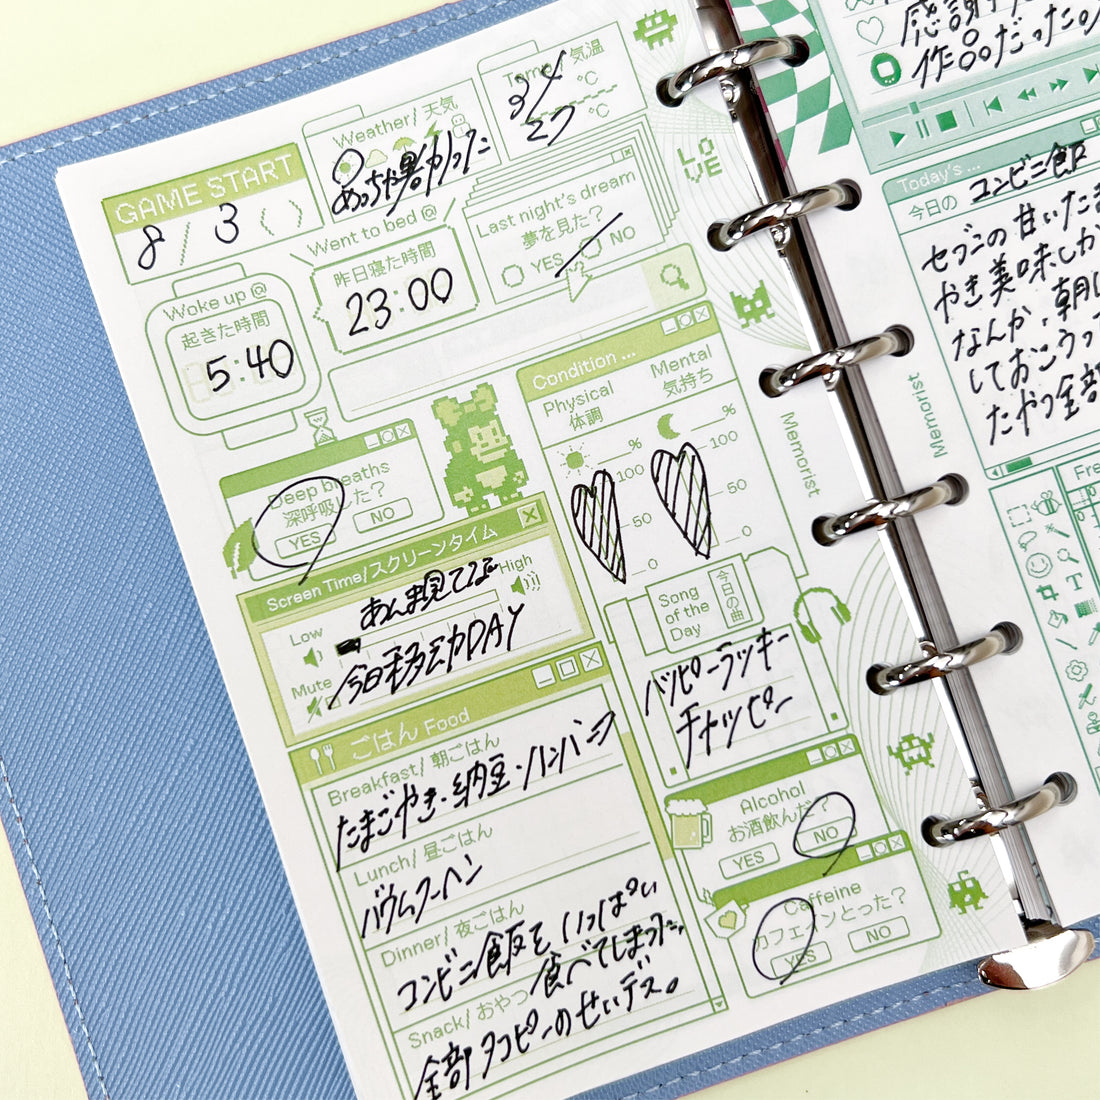 GAME START
8 / 3 ( )
Weather/天気
めっちゃ暑かった
Temp/気温
°C
°C
LOVE
Woke up @
起きた時間
5:40
Went to bed @
昨日寝た時間
23:00
Last night's dream
夢を見た?
YES
NO
Deep breaths
深呼吸した?
YES
NO
Condition ...
Physical
体調
Mental
気持ち
%
100
50
0
%
100
50
0
Screen Time/スクリーンタイム
あんま見てない
Low
High
Mute
今日移動DAY
Song
of the
Day
今日の曲
ハッピーラッキー
チャッピー
ごはん Food
Breakfast/朝ごはん
たまごやき・納豆・ハンバーク
Lunch/昼ごはん
バウムクーヘン
Dinner/夜ごはん
コンビニ飯をいっぱい
食べてしまった。
Snack/おやつ
全部タコピーのせいデス。
Alcohol
お酒飲んだ?
YES
NO
Caffeine
カフェインとった?
YES
NO
Memorist
作品だった
Today's ...
今日の コンビニ飯
セブンの甘いたま
やき美味しか
なんか、朝
しておこうっ
たやつ全部
Memorist